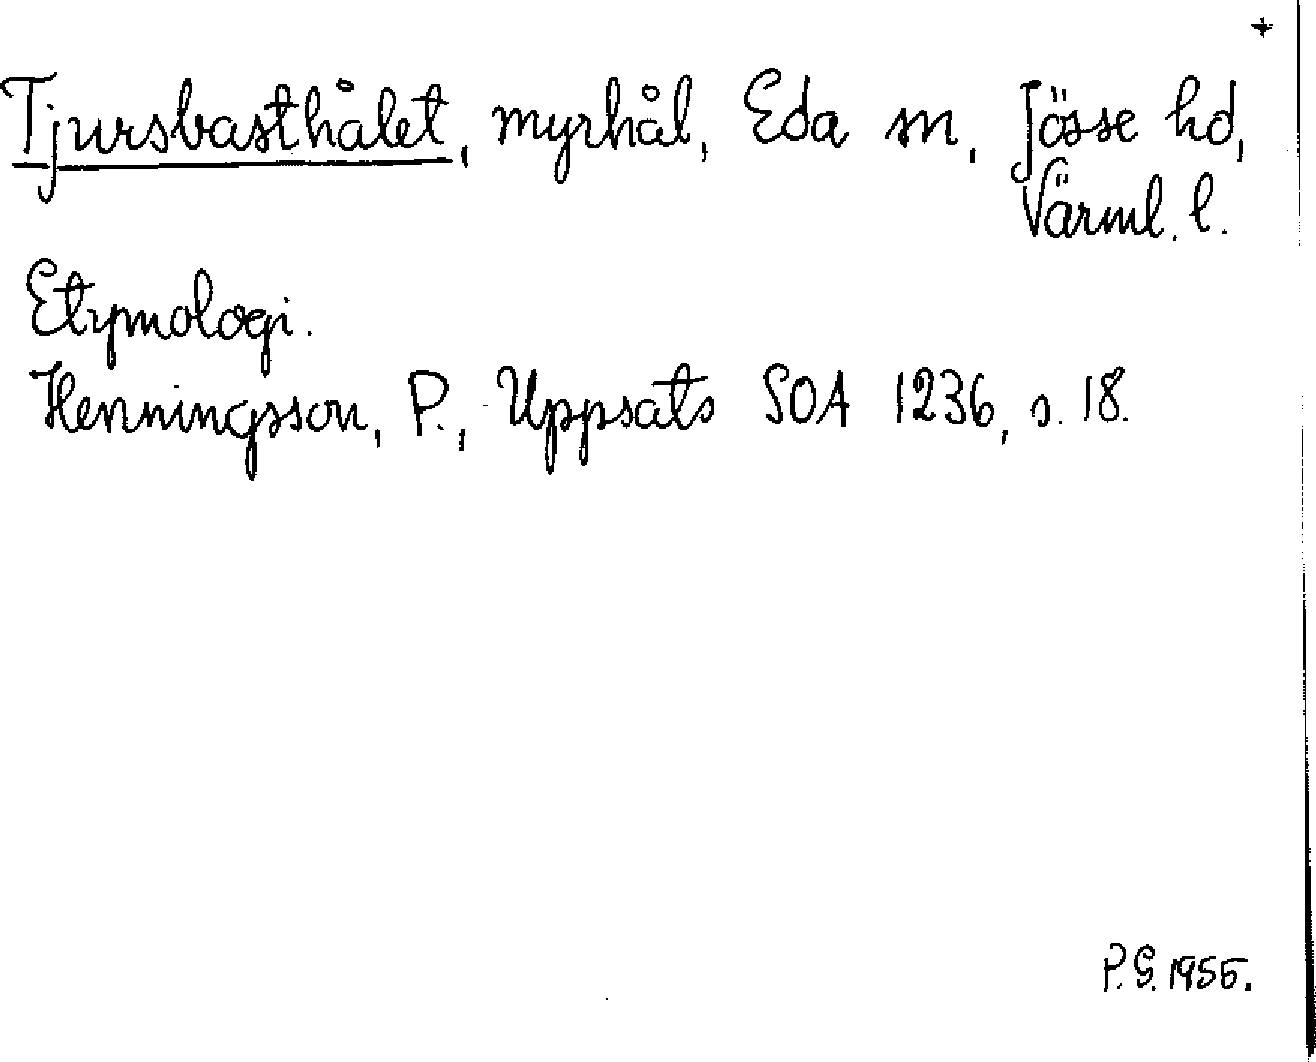 +
Tjursbasthålet, myrhål, Eda sn, Jösse hd,
Värml. l.
Etymologi.
Henningsson, P., Uppsats SOA 1236, s. 18.
P.G. 1955.